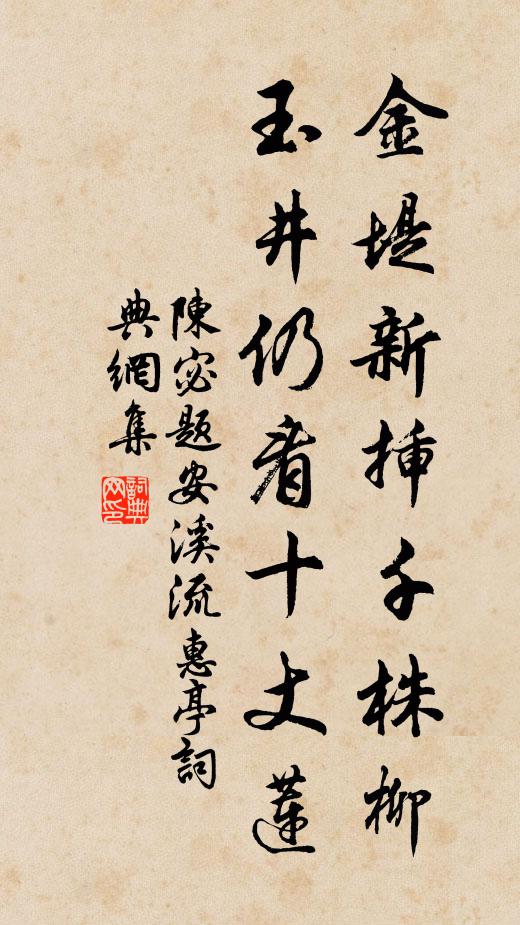 金堤新揷千株柳
玉井仍看十丈蓮
陳宓題安溪流惠亭詞
典網集
詞典網印